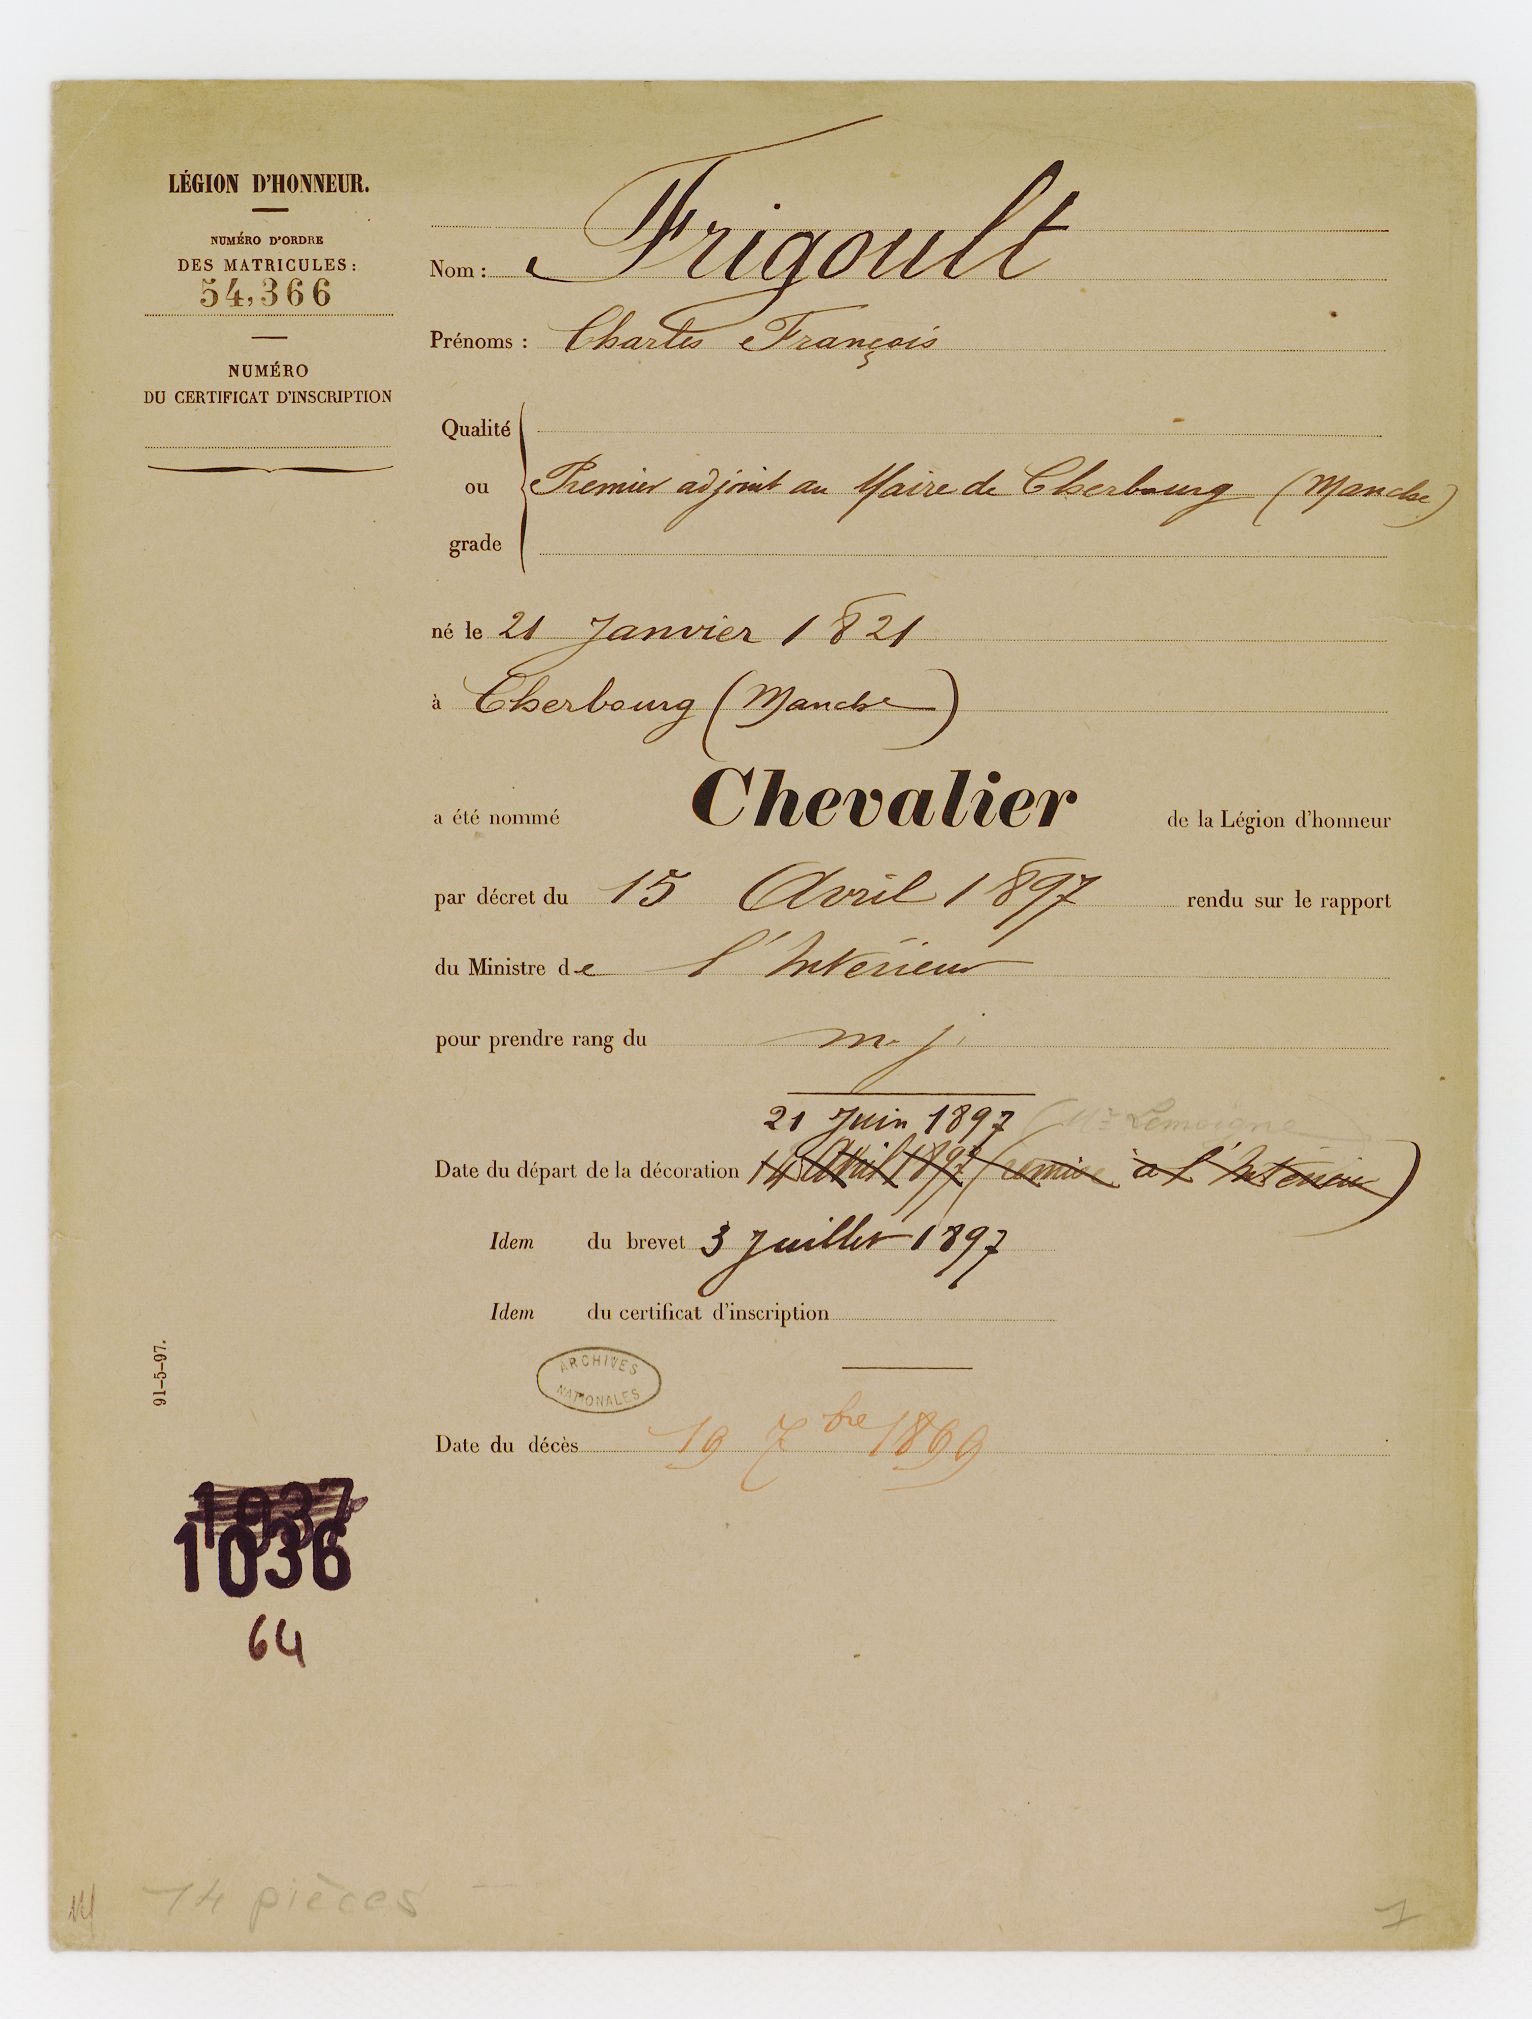 LÉGION D'HONNEUR.
NUMÉRO D'ORDRE
DES MATRICULES:
54,366
NUMÉRO
DU CERTIFICAT D'INSCRIPTION
Nom : Frigoult
Prénoms : Charles François
Qualité
ou
grade
Premier adjoint au Maire de Cherbourg (Manche)
né le 21 Janvier 1821
à Cherbourg (Manche)
a été nommé Chevalier de la Légion d'honneur
par décret du 15 Avril 1897 rendu sur le rapport
du Ministre de l'Intérieur
pour prendre rang du m. j.
21 Juin 1897 (Mr Lemoigne)
Date du départ de la décoration 14 Avril 1897 (remise à l'Intérieur)
Idem du brevet 3 Juillet 1897
Idem du certificat d'inscription
ARCHIVES
NATIONALES
Date du décès 19 7bre 1899
91-5-97.
1037
1036
64
14 pièces
1